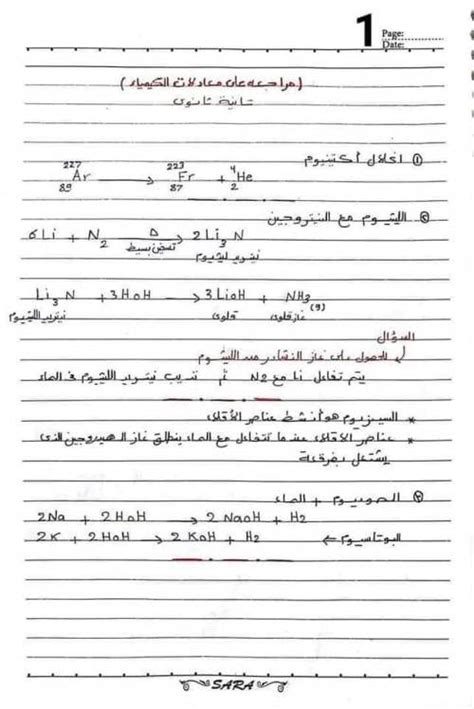 1
Page:
Date:
(مراجعه على معادلات الكيمياء)
ثانية ثانوى
① انحلال أكتينيوم
²²⁷₈₉Ar → ²²³₈₇Fr + ⁴₂He
② الليثيوم مع النيتروجين
6Li + N₂ →Δ 2Li₃N
تسخين بسيط
نيتريد ليثيوم
Li₃N + 3HoH → 3LioH + NH₃(g)
نيتريد الليثيوم قلوى غاز قلوى
السؤال
للحصول على غاز النشادر من الليثيوم
يتم تفاعل مع N2 ثم نيتريد الليثيوم فى الماء
* السيزيوم هو أنشط عناصر الأقلاء
* عناصر الأقلاء عندما تتفاعل مع الماء ينطلق غاز الهيدروجين الذى
يشتعل بفرقعة
③ الصوديوم + الماء
2Na + 2HoH → 2NaoH + H2
2K + 2HoH → 2KoH + H2 ← البوتاسيوم
SARA